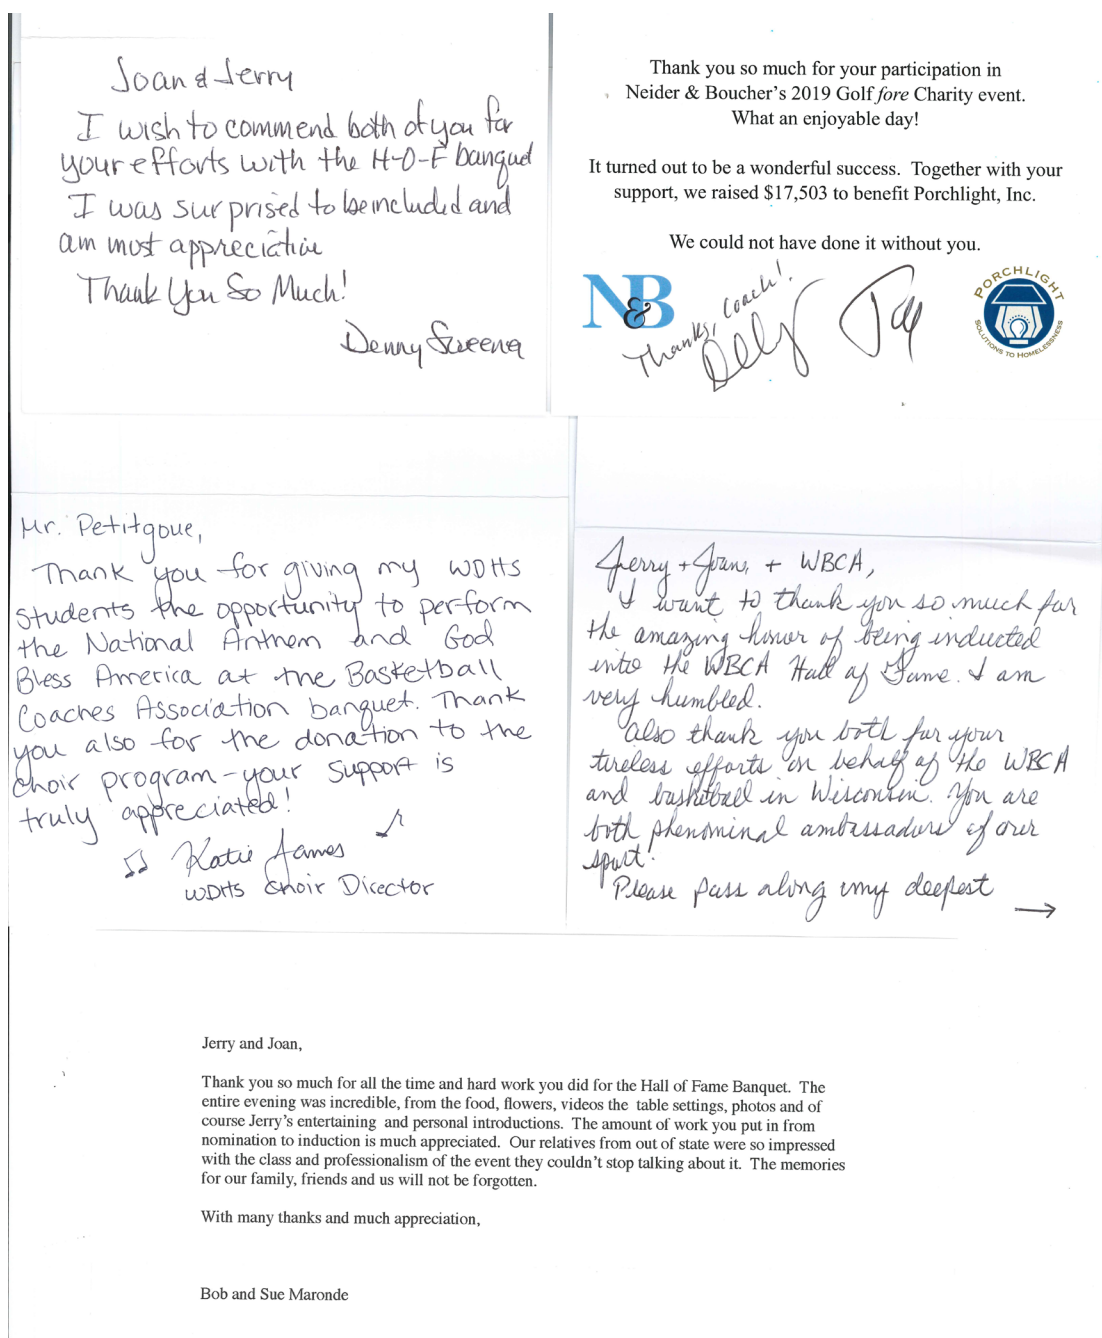 Joan & Jerry
I wish to commend both of you for
your efforts with the H-O-F banquet
I was surprised to be included and
am most appreciative
Thank You So Much!
Denny
Thank you so much for your participation in
Neider & Boucher's 2019 Golf fore Charity event.
What an enjoyable day!
It turned out to be a wonderful success. Together with your
support, we raised $17,503 to benefit Porchlight, Inc.
We could not have done it without you.
N&B
Thanks, Coach!
PORCHLIGHT
SOLUTIONS TO HOMELESSNESS
Mr. Petitgoue,
Thank you for giving my WDHS
students the opportunity to perform
the National Anthem and God
Bless America at the Basketball
Coaches Association banquet. Thank
you also for the donation to the
choir program - your support is
truly appreciated!
Katie James
WDHS Choir Director
Jerry + Joan, + WBCA,
I want to thank you so much for
the amazing honor of being inducted
into the WBCA Hall of Fame. I am
very humbled.
Also thank you both for your
tireless efforts on behalf of the WBCA
and basketball in Wisconsin. You are
both phenominal ambassadors of our
sport!
Please pass along my deepest →
Jerry and Joan,
Thank you so much for all the time and hard work you did for the Hall of Fame Banquet. The
entire evening was incredible, from the food, flowers, videos the table settings, photos and of
course Jerry's entertaining and personal introductions. The amount of work you put in from
nomination to induction is much appreciated. Our relatives from out of state were so impressed
with the class and professionalism of the event they couldn't stop talking about it. The memories
for our family, friends and us will not be forgotten.
With many thanks and much appreciation,
Bob and Sue Maronde